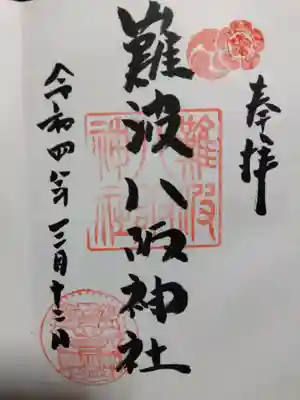 奉拝
難波八阪神社
令和四年三月十二日
難波
八阪
神社